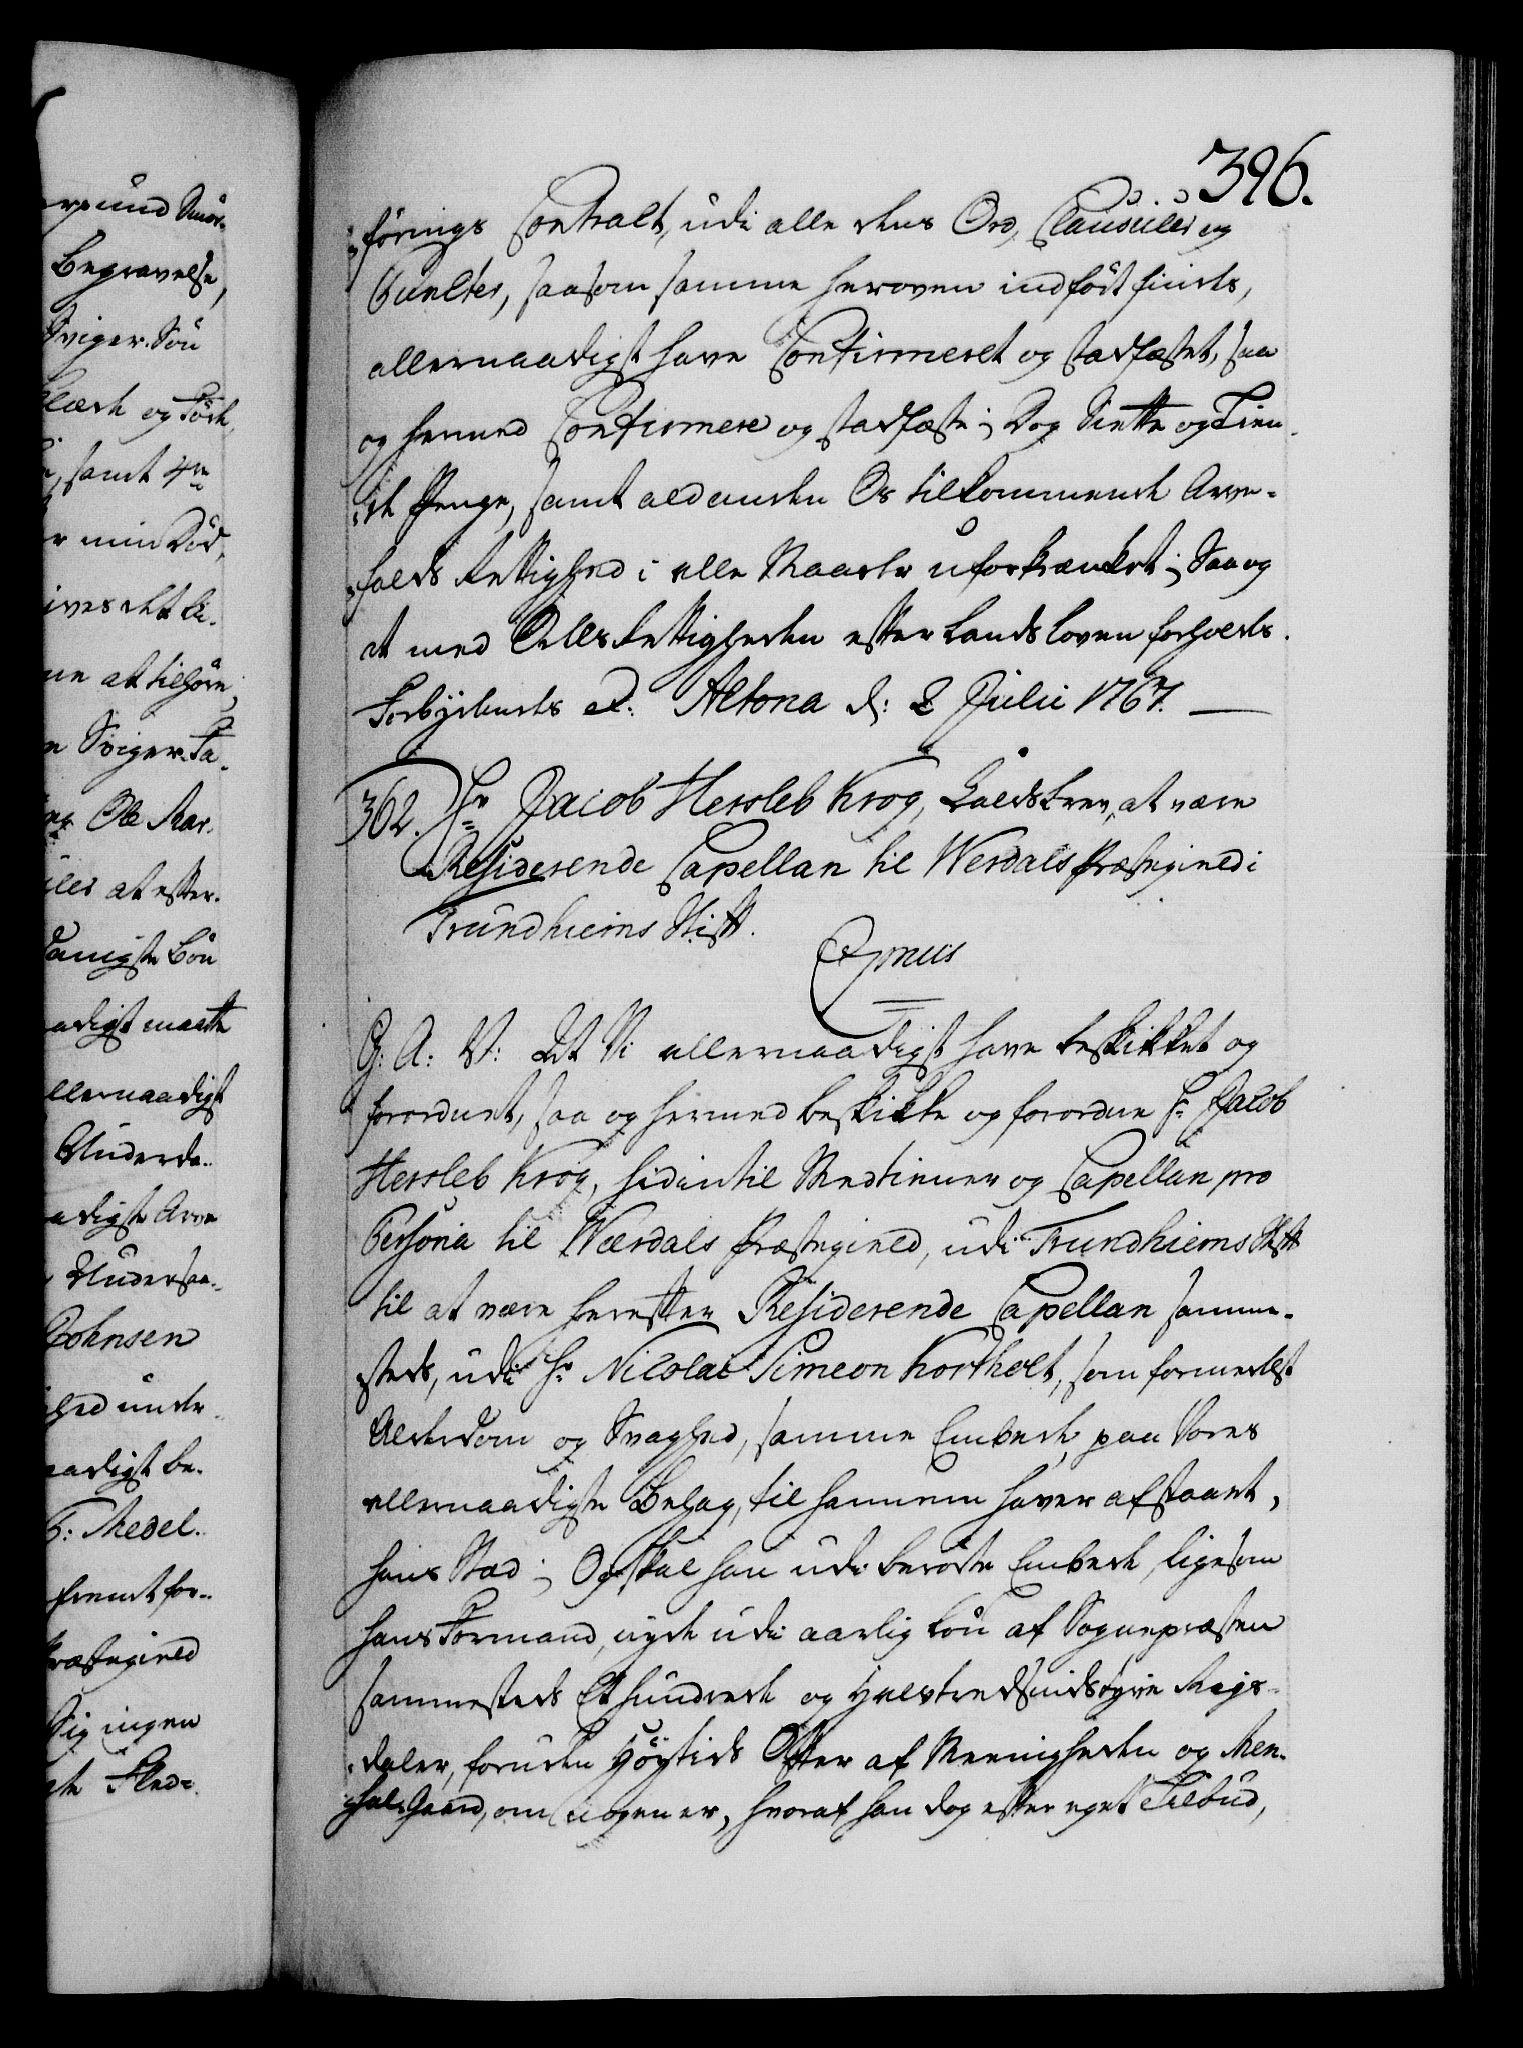 396.
førings Contract, udi alle dens Ord, Clausuler og
Puncter, saasom samme heroven indført findes,
allernaadigst have Confirmeret og stadfæstet, saa
og hermed Confirmere og stadfæste; Dog Siette og Tien-
de Penge, samt ald anden Os tilkommende Arve-
falds Rettighed i alle Maader uforkrænket; Saa og
at med Odels Rettigheden efter Lands Loven forholdes.
Forbydendes etc: Altona d: 2 Julii 1767.
362. Hr Jacob Hersleb Krog, Kaldsbrev, at være
Residerende Capellan til Werdals Præstegield i
Trundhiems Stift.
Expnus
C: A: V: At Vi allernaadigst have beskikket og
forordnet, saa og hermed beskikke og forordne Hr Jacob
Hersleb Krog, hidindtil Medtiener og Capellan pro
Persona til Wærdals Præstegield, udi Trundhiems Stift
til at være herefter Residerende Capellan samme-
steds, udi Hr Nicolai Simeon Kortholt, som formedelst
Alderdom og Svaghed, samme Embede, paa Vores
allernaadigste Behag, til hannem haver afstaaet,
hans Stad; Og skal han udi berørte Embede, ligesom
hans Formand, nyde udi aarlig Løn af Sognepræsten
sammesteds Et hundrede og Halvtredsindstyve Rigs-
daler, foruden Høytids Offer af Meenigheden og Men-
sal-Gaard, om nogen er, hvoraf han dog efter eget Tilbud,
erpund Smør.
Begravelse,
Sviger-Søn
samt 4re
r min Død,
ives det be-
ne at tilhøre,
n Sviger-Fa-
Ole Mar-
uler at efter-
danigste Bøn
adigst maatte
llernaadigst
Underda-
adigste Arve
Undersaa-
Johnsen
hed under-
aadigst be-
G: Medel-
fremt for-
ræstegield
Sig ingen